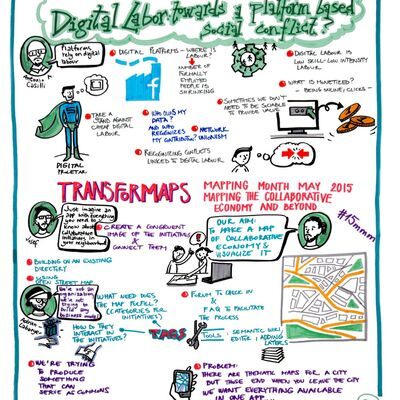 Digital Labor: towards a platform based
social conflict?
Platforms
rely on digital
labour
Antonio A.
Casilli
DIGITAL PLATFORMS - WHERE IS
LABOUR?
NUMBER OF
FORMALLY
EMPLOYED
PEOPLE IS
SHRINKING
DIGITAL LABOUR IS
LOW SKILL-LOW INTENSITY
LABOUR
WHAT IS MONETIZED?
- BEING ONLINE; CLICKS -
TAKE A
STAND AGAINST
CHEAP DIGITAL
LABOUR
WHO OWNS MY
DATA?
AND WHO
RECOGNIZES
MY CONTRIBUTION?
NETWORK
UNIONISM
SOMETIMES WE DON'T
NEED TO BE
TO PROVIDE VALUE
RECOGNIZING CONFLICTS
LINKED TO DIGITAL LABOUR
DIGITAL
TRANSFORMAPS
MAPPING MONTH MAY 2015
MAPPING THE COLLABORATIVE
ECONOMY AND BEYOND
#15mmm
Just imagine an
app with everything
you need to
know about
collaborative
initiatives in
your neighbourhood
CREATE A CONGRUENT
IMAGE OF THE INITIATIVES &
CONNECT THEM
OUR AIM:
TO MAKE A MAP
OF COLLABORATIVE
ECONOMY &
VISUALIZE IT
BUILDING ON AN EXISTING
DIRECTORY
USING
OPEN STREET MAP
We're not an
organization;
we're not
trying to
build any
business model
WHAT NEED DOES
THE MAP FULFILL?
(CATEGORIES FOR
INITIATIVES)
HOW DO THEY
INTERACT IN
THE INITIATIVES?
TAGS
FORUM TO CHECK IN
&
FAQ TO FACILITATE
THE PROCESS
TOOLS: SEMANTIC WIKI
EDITOR; ADDING
LAYERS
WE'RE TRYING
TO PRODUCE
SOMETHING
THAT CAN
SERVE AS COMMONS
PROBLEM:
THERE ARE THEMATIC MAPS FOR A CITY
BUT THOSE END WHEN YOU LEAVE THE CITY
WE WANT EVERYTHING AVAILABLE
IN ONE APP...